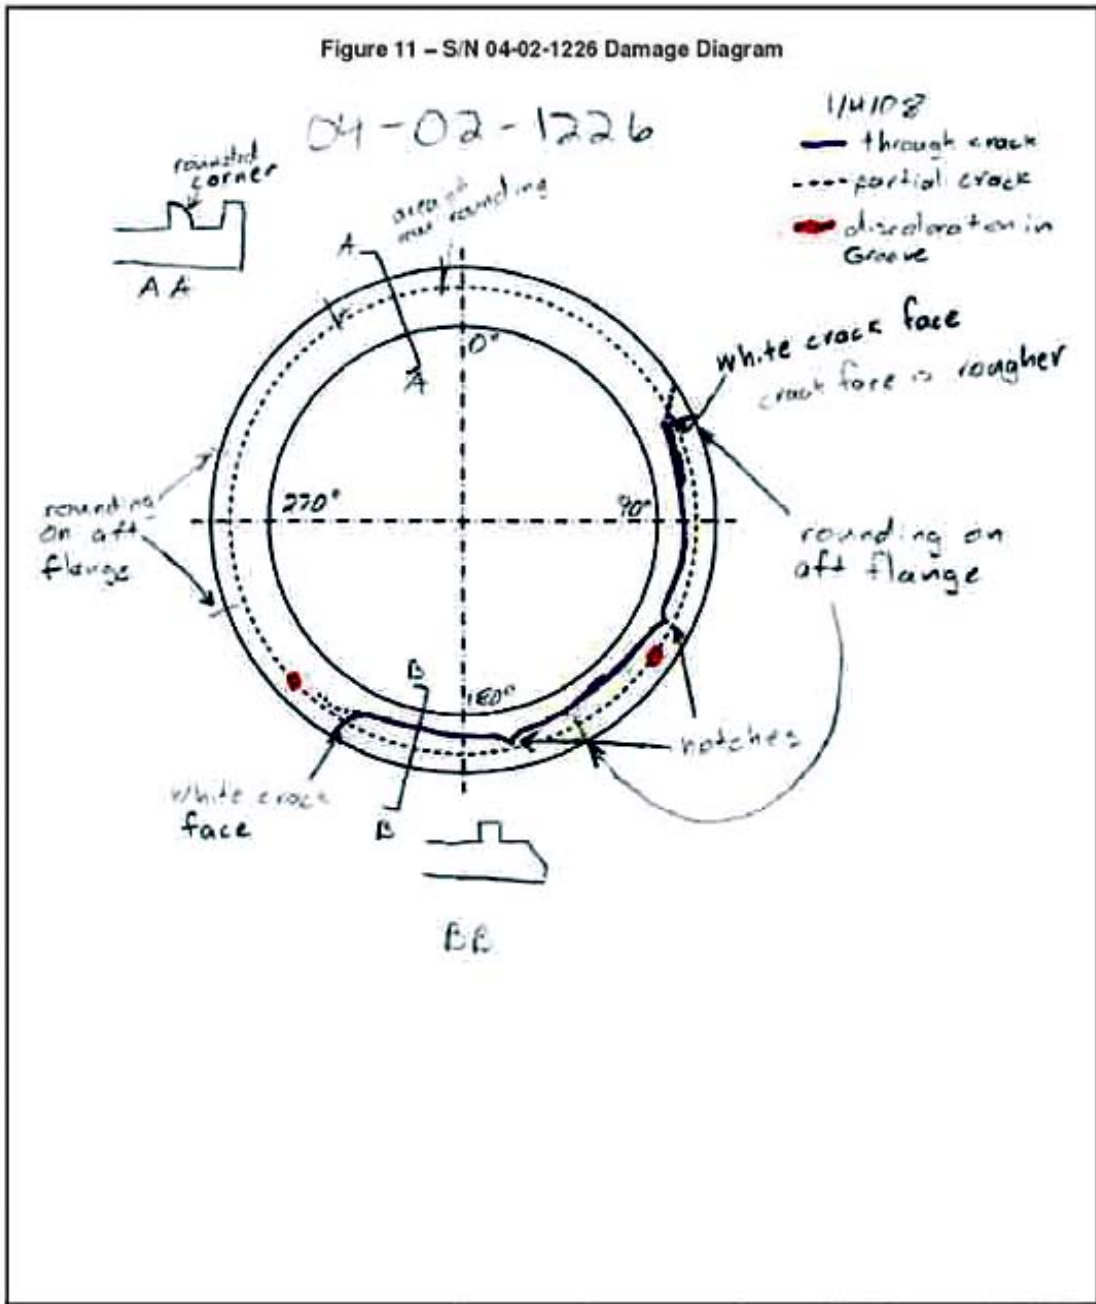 Figure 11 – S/N 04-02-1226 Damage Diagram
04-02-1226
1/4/08
through crack
partial crack
discoloration in
Groove
rounded
corner
A A
area of
max rounding
A
A
0°
white crack face
crack face is rougher
270°
90°
rounding
on aft
flange
rounding on
aft flange
B
180°
notches
white crack
face
B
BB